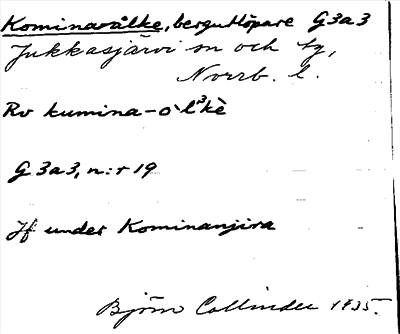 Kominavålke, bergutlöpare G3a3
Jukkasjärvi sn och tg,
Norrb. l.
Rv kumina-o`l³kè
G 3a3, n:r 19
Jf under Kominanjira
Björn Collinder 1935.